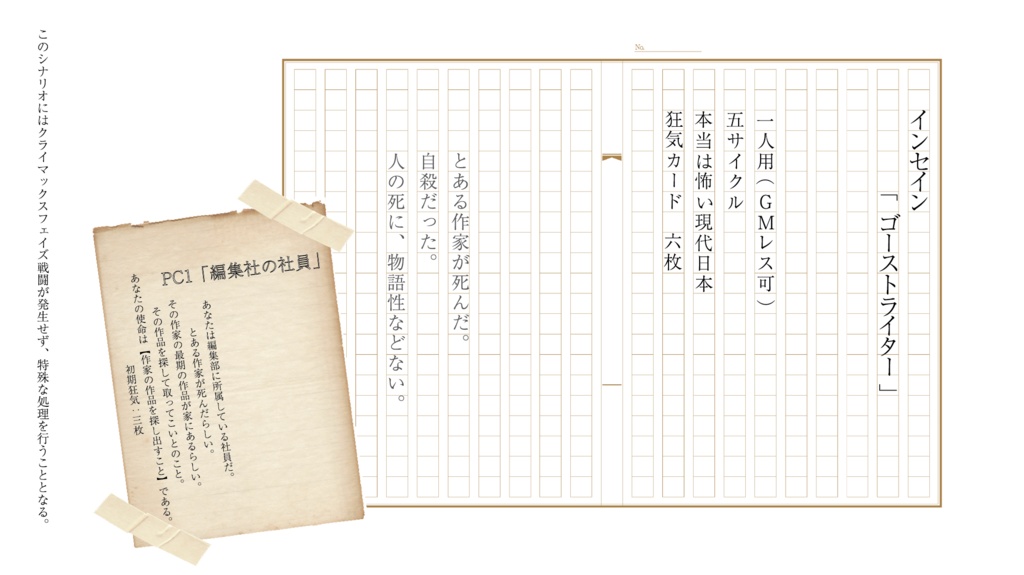 No.
インセイン
「ゴーストライター」
一人用（GMレス可）
五サイクル
本当は怖い現代日本
狂気カード　六枚
とある作家が死んだ。
自殺だった。
人の死に、物語性などない。
PC1「編集社の社員」
あなたは編集部に所属している社員だ。
とある作家が死んだらしい。
その作家の最期の作品が家にあるらしい。
その作品を探して取ってこいとのこと。
あなたの使命は【作家の作品を探し出すこと】である。
初期狂気：三枚
このシナリオにはクライマックスフェイズ戦闘が発生せず、特殊な処理を行うこととなる。